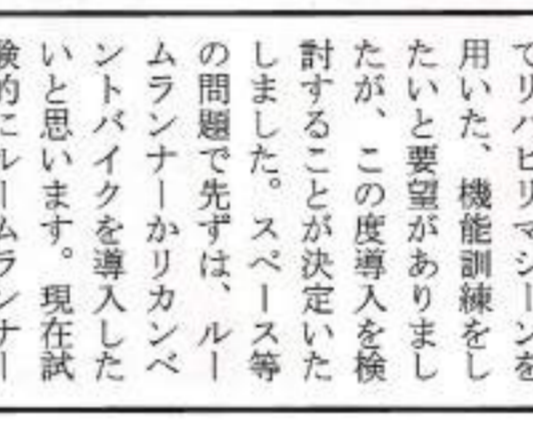 てリハビリマシーンを
用いた、機能訓練をし
たいと要望がありまし
たが、この度導入を検
討することが決定いた
しました。スペース等
の問題で先ずは、ルー
ムランナーかリカンベ
ントバイクを導入した
いと思います。現在試
験的にルームランナー